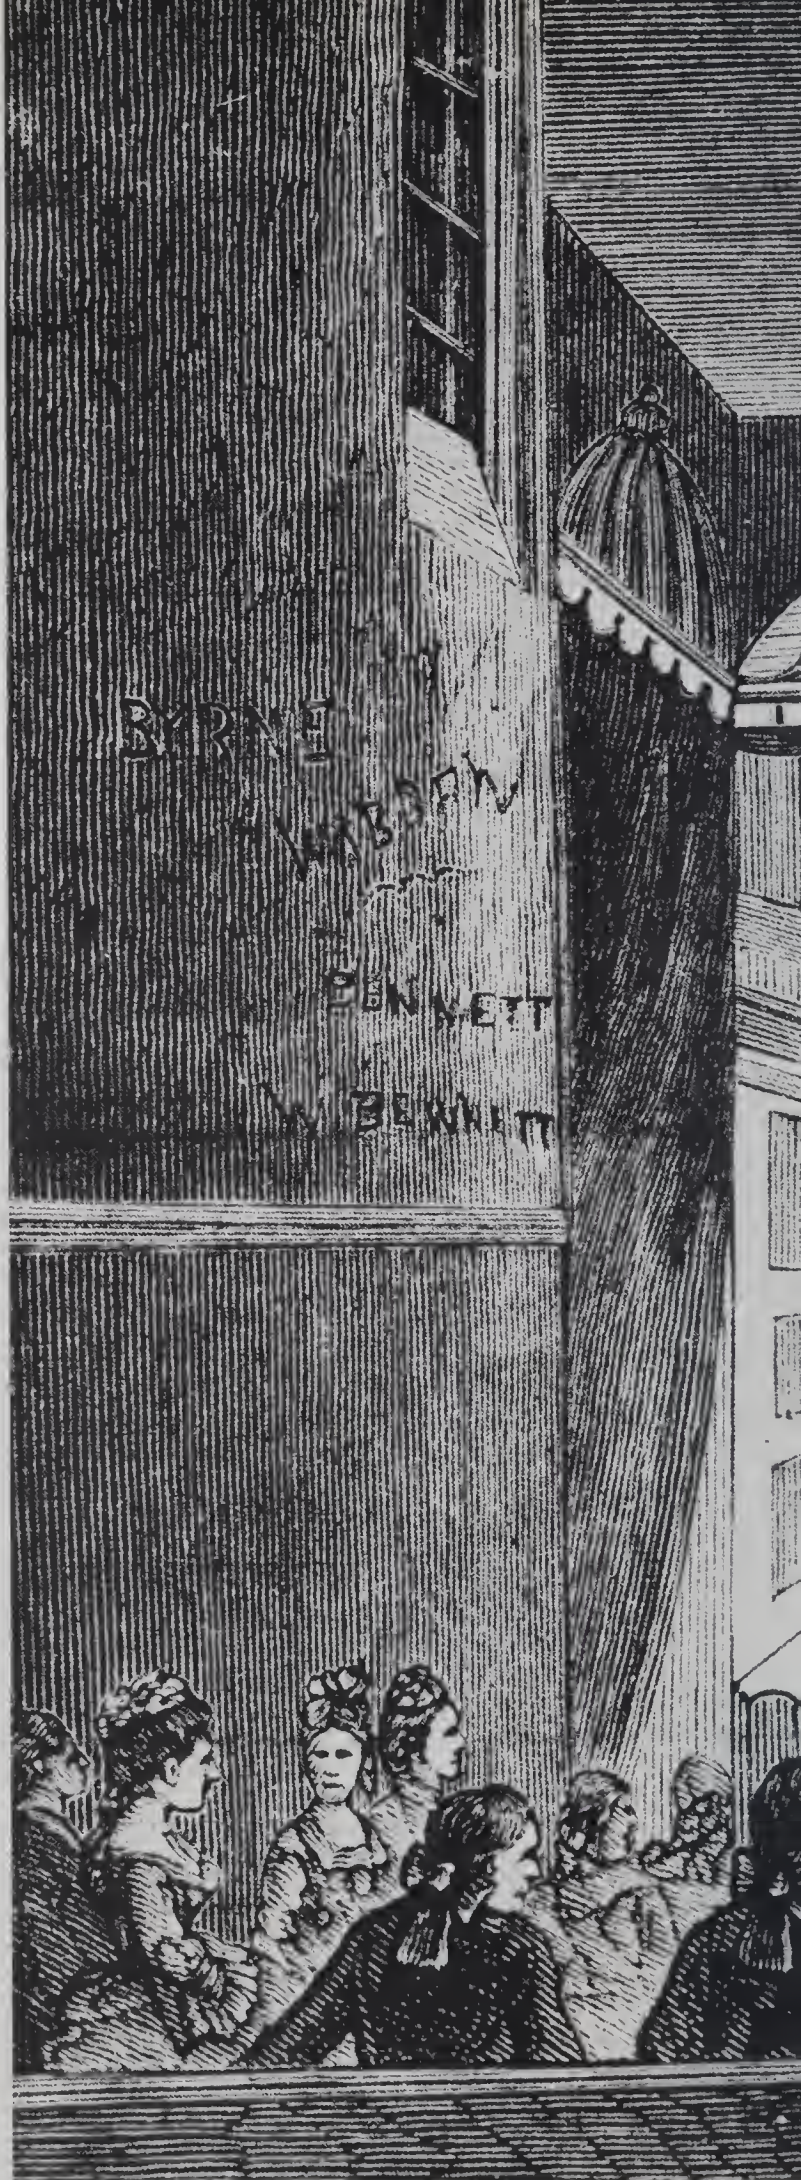 BYRNE
WILSON
BENNETT
W. BENNETT